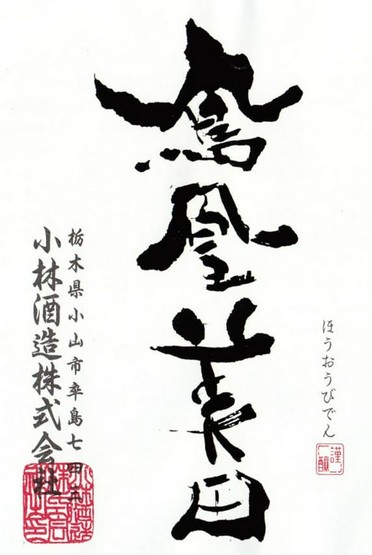 ほうおうびでん
謹醸
鳳凰美田
栃木県小山市卒島七四
小林酒造株式会社